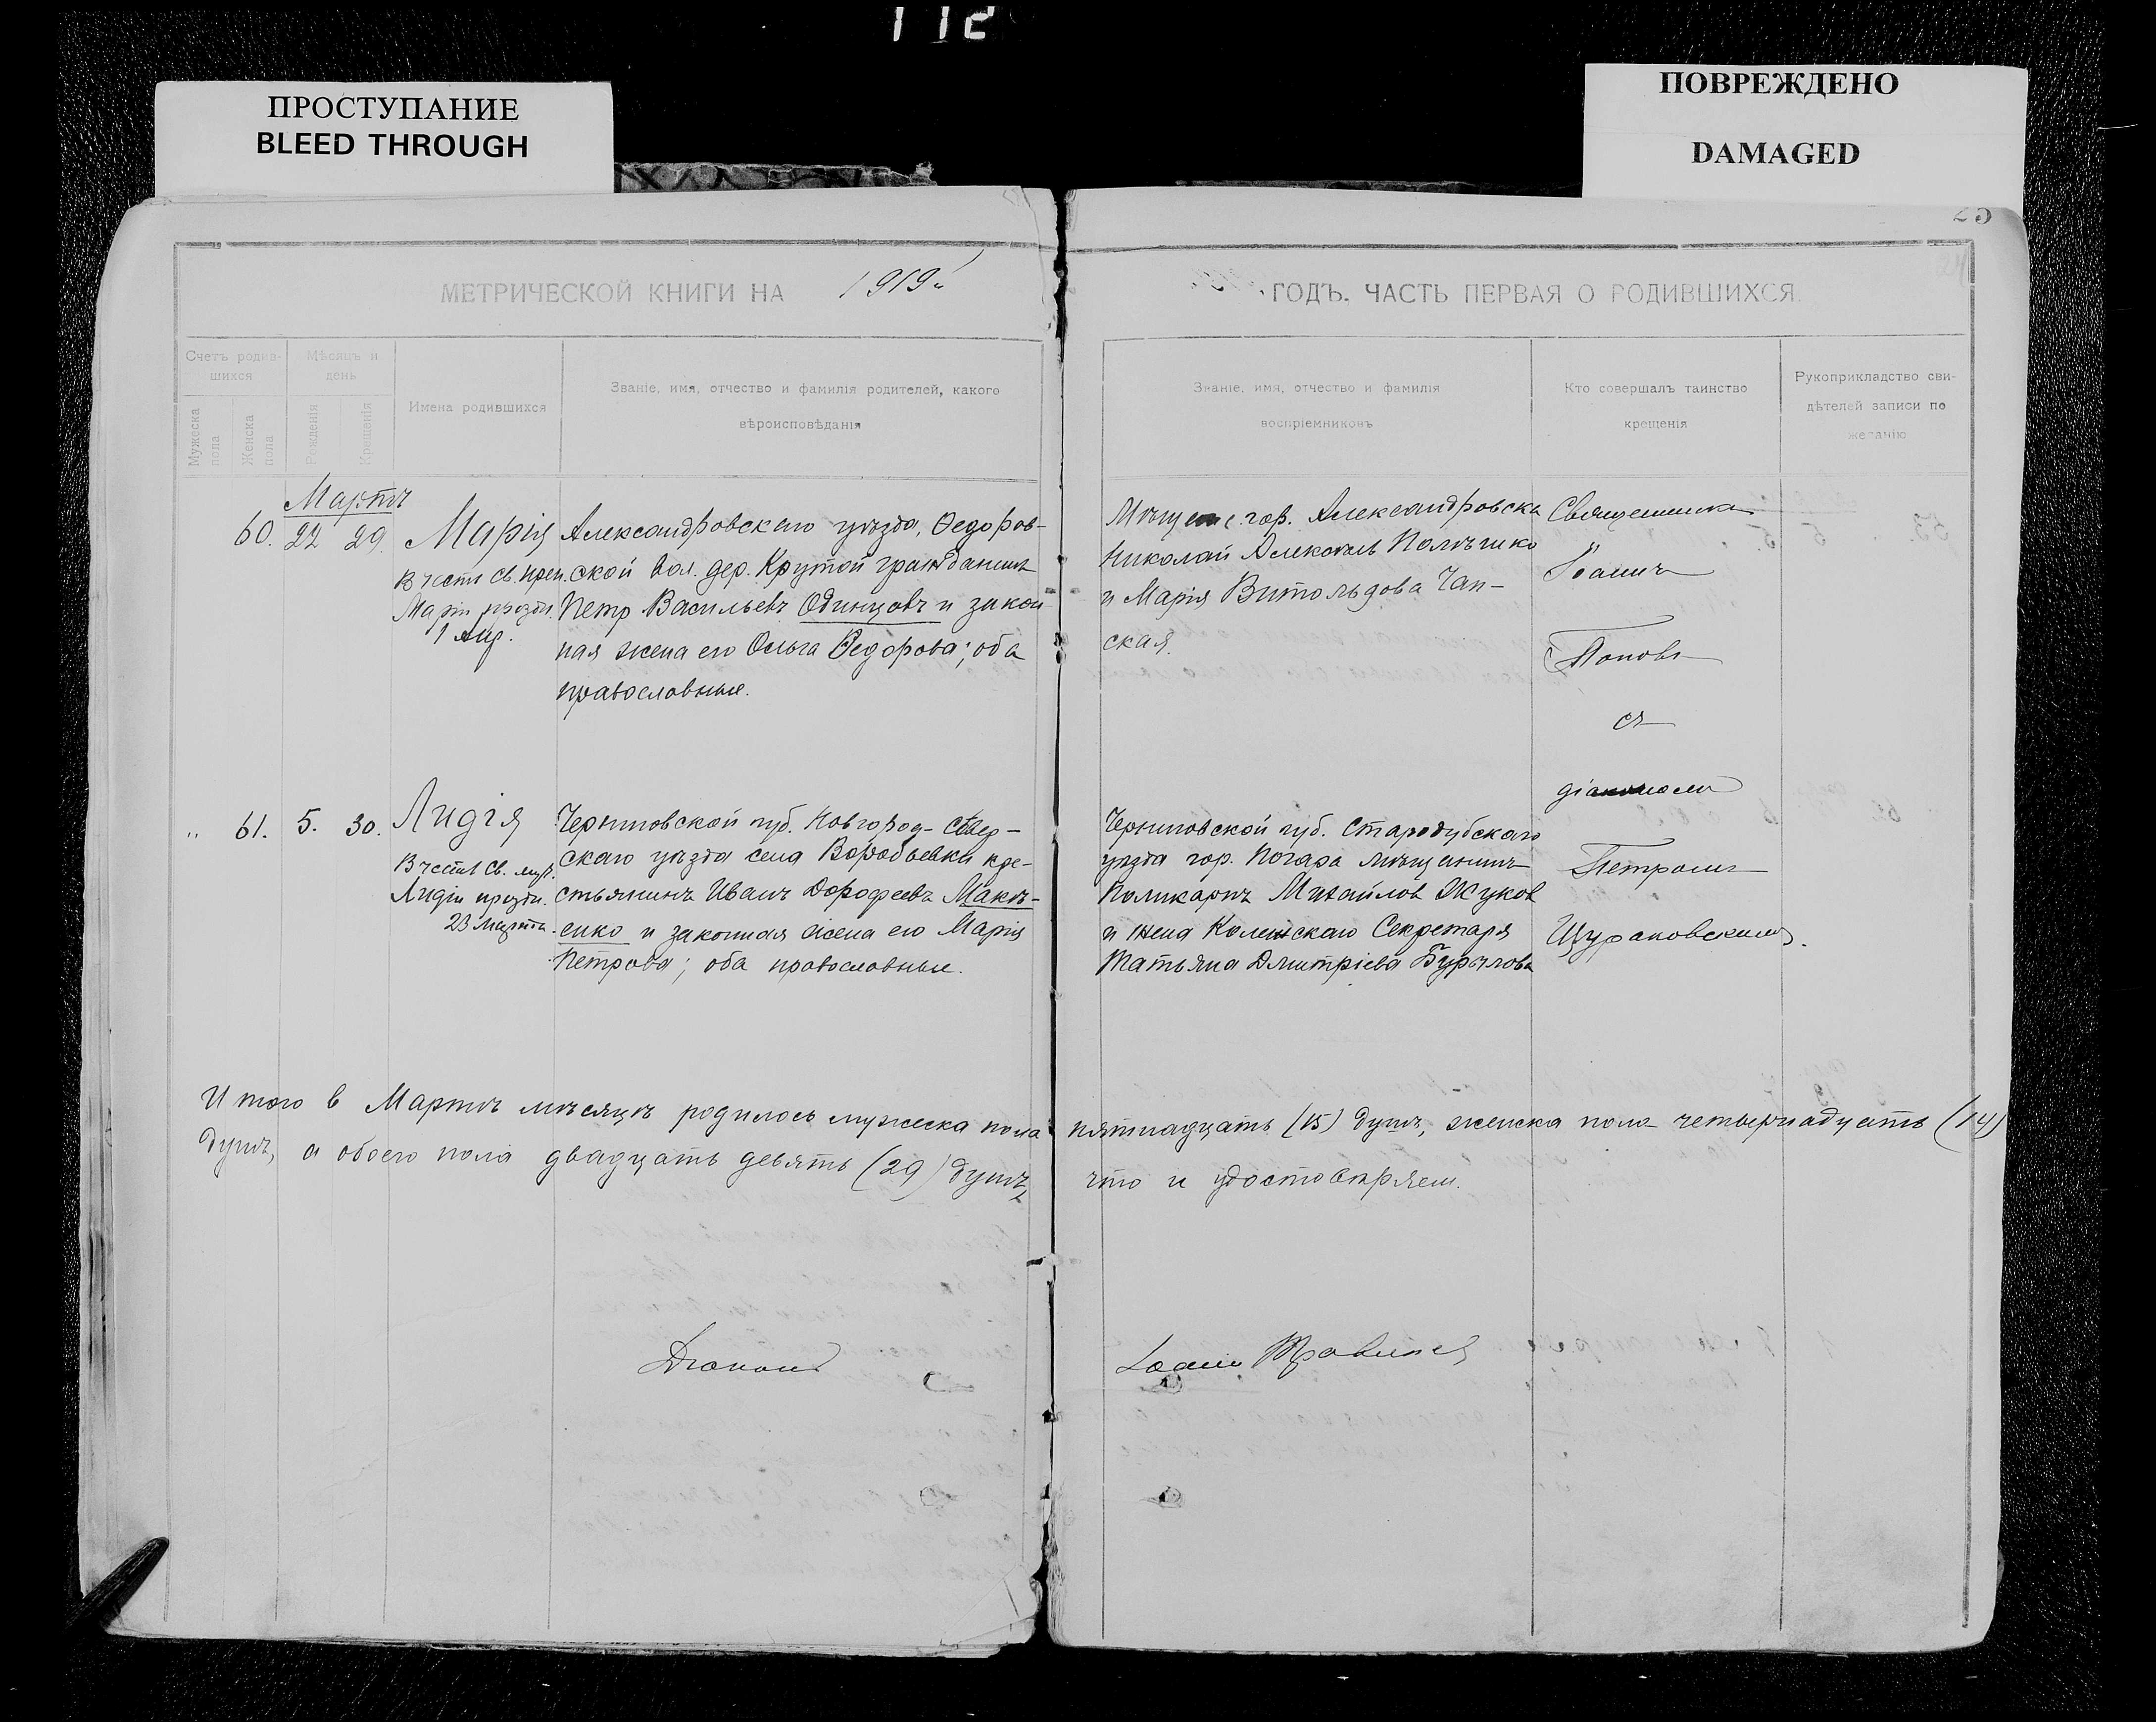 112
ПРОСТУПАНИЕ
BLEED THROUGH
ПОВРЕЖДЕНО
DAMAGED
25
МЕТРИЧЕСКОЙ КНИГИ НА 1919
ГОДЪ. ЧАСТЬ ПЕРВАЯ О РОДИВШИХСЯ
Счетъ родив-
шихся
Мужеска пола
Женска пола
Мѣсяцъ и
день
Рожденія
Крещенія
Имена родившихся
Званіе, имя, отчество и фамилія родителей, какого
вѣроисповѣданія
Званіе, имя, отчество и фамилія
воспріемниковъ
Кто совершалъ таинство
крещенія
Рукоприкладство сви-
дѣтелей записи по
желанію
Мартъ
60. 22 29. Марія
В честь св. преп.
Маріи праздн.
1 Апр.
Александровскаго уѣзда, Ѳедоров-
ской вол. дер. Крутой гражданинъ
Петр Васильевъ Одинцовъ и закон
ная жена его Ольга Ѳедорова; оба
православные.
гор. Александровска
Николай
и Марія Витольдова Чап-
ская.
Священникъ
Іоаннъ
Поповъ
съ
діакономъ
Петромъ
Щураковскимъ.
" 61. 5. 30. Лидія
В честь Св. муч.
Лидіи праздн.
23 Марта.
Черниговской губ. Новгород-Сѣвер-
скаго уѣзда села Воробьевки кре-
стьянинъ Иванъ Дорофеевъ Макѣ-
енко и законная жена его Марія
Петрова; оба православные.
Черниговской губ. Стародубскаго
уѣзда гор. Погара мѣщанинъ
Поликарпъ Михайлов Жуков
и жена Колежскаго Секретаря
Татьяна Дмитріева Бурылова
Итого в Мартѣ мѣсяцѣ родилось мужеска пола пятнадцать (15) душъ, женска пола четырнадцать (14)
душъ, а обоего пола двадцать девять (29) душъ, что и удостовѣряем.
Діаконъ